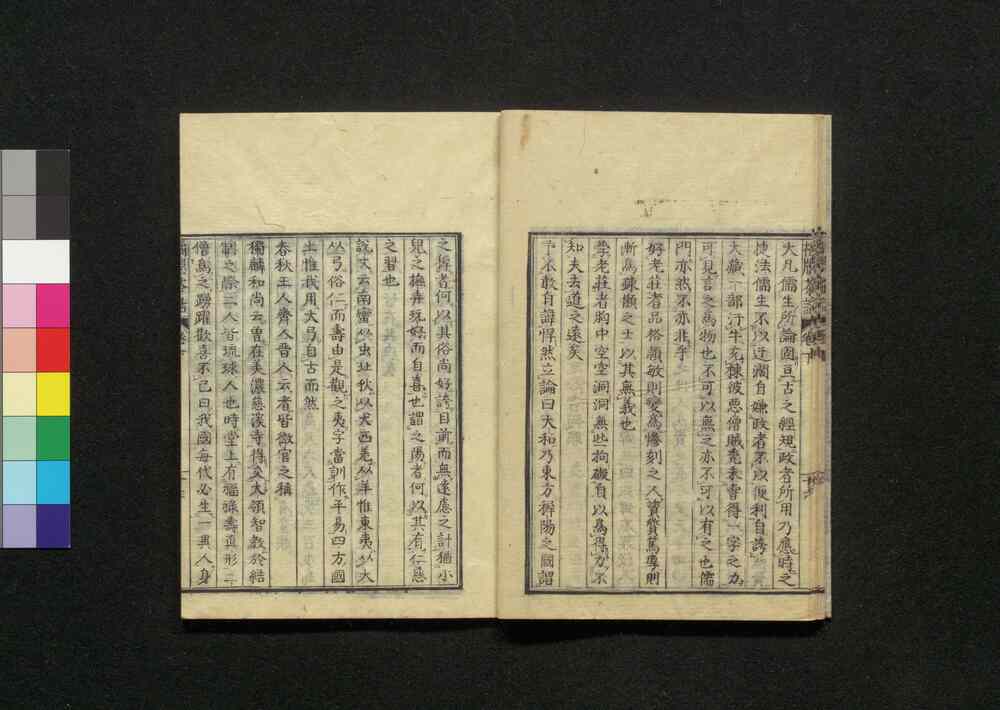 大凡儒生所論固亘古之經規政者所用乃應時之
使法儒生不以迂濶自嫌政者不以便利自誇
大藏一部汗牛充棟彼惡僧賊禿未曾得一字之力
可見言之爲物也不可以無之亦不可以有之也儒
門亦然不亦悲乎
好老莊者品格穎敏則變爲慘刻之人資質篤厚則
漸爲疎懶之士以其無我也
學老莊者胸中空空洞洞無些拘礙自以爲得力不
知夫去道之遠矣
予不敢自諱悍然立論曰大和乃東方稺陽之國謂
之稺者何以其俗尚好誇目前而無遠慮之計猶小
兒之撫弄玩好而自喜也謂之陽者何以其有仁慈
之習也
說文云南蠻从虫北狄从犬西羌从羊惟東夷从大
从弓俗仁而壽由是觀之夷字當訓作平易四方國
土惟我用大弓自古而然
春秋王人齊人晉人云者皆微官之稱
獨麟和尚云曾在美濃慈溪寺得爻大領智敎於結
制之際二人皆琉球人也時堂上有福祿壽眞形二
僧爲之踴躍歡喜不已曰我國每代必生一異人身